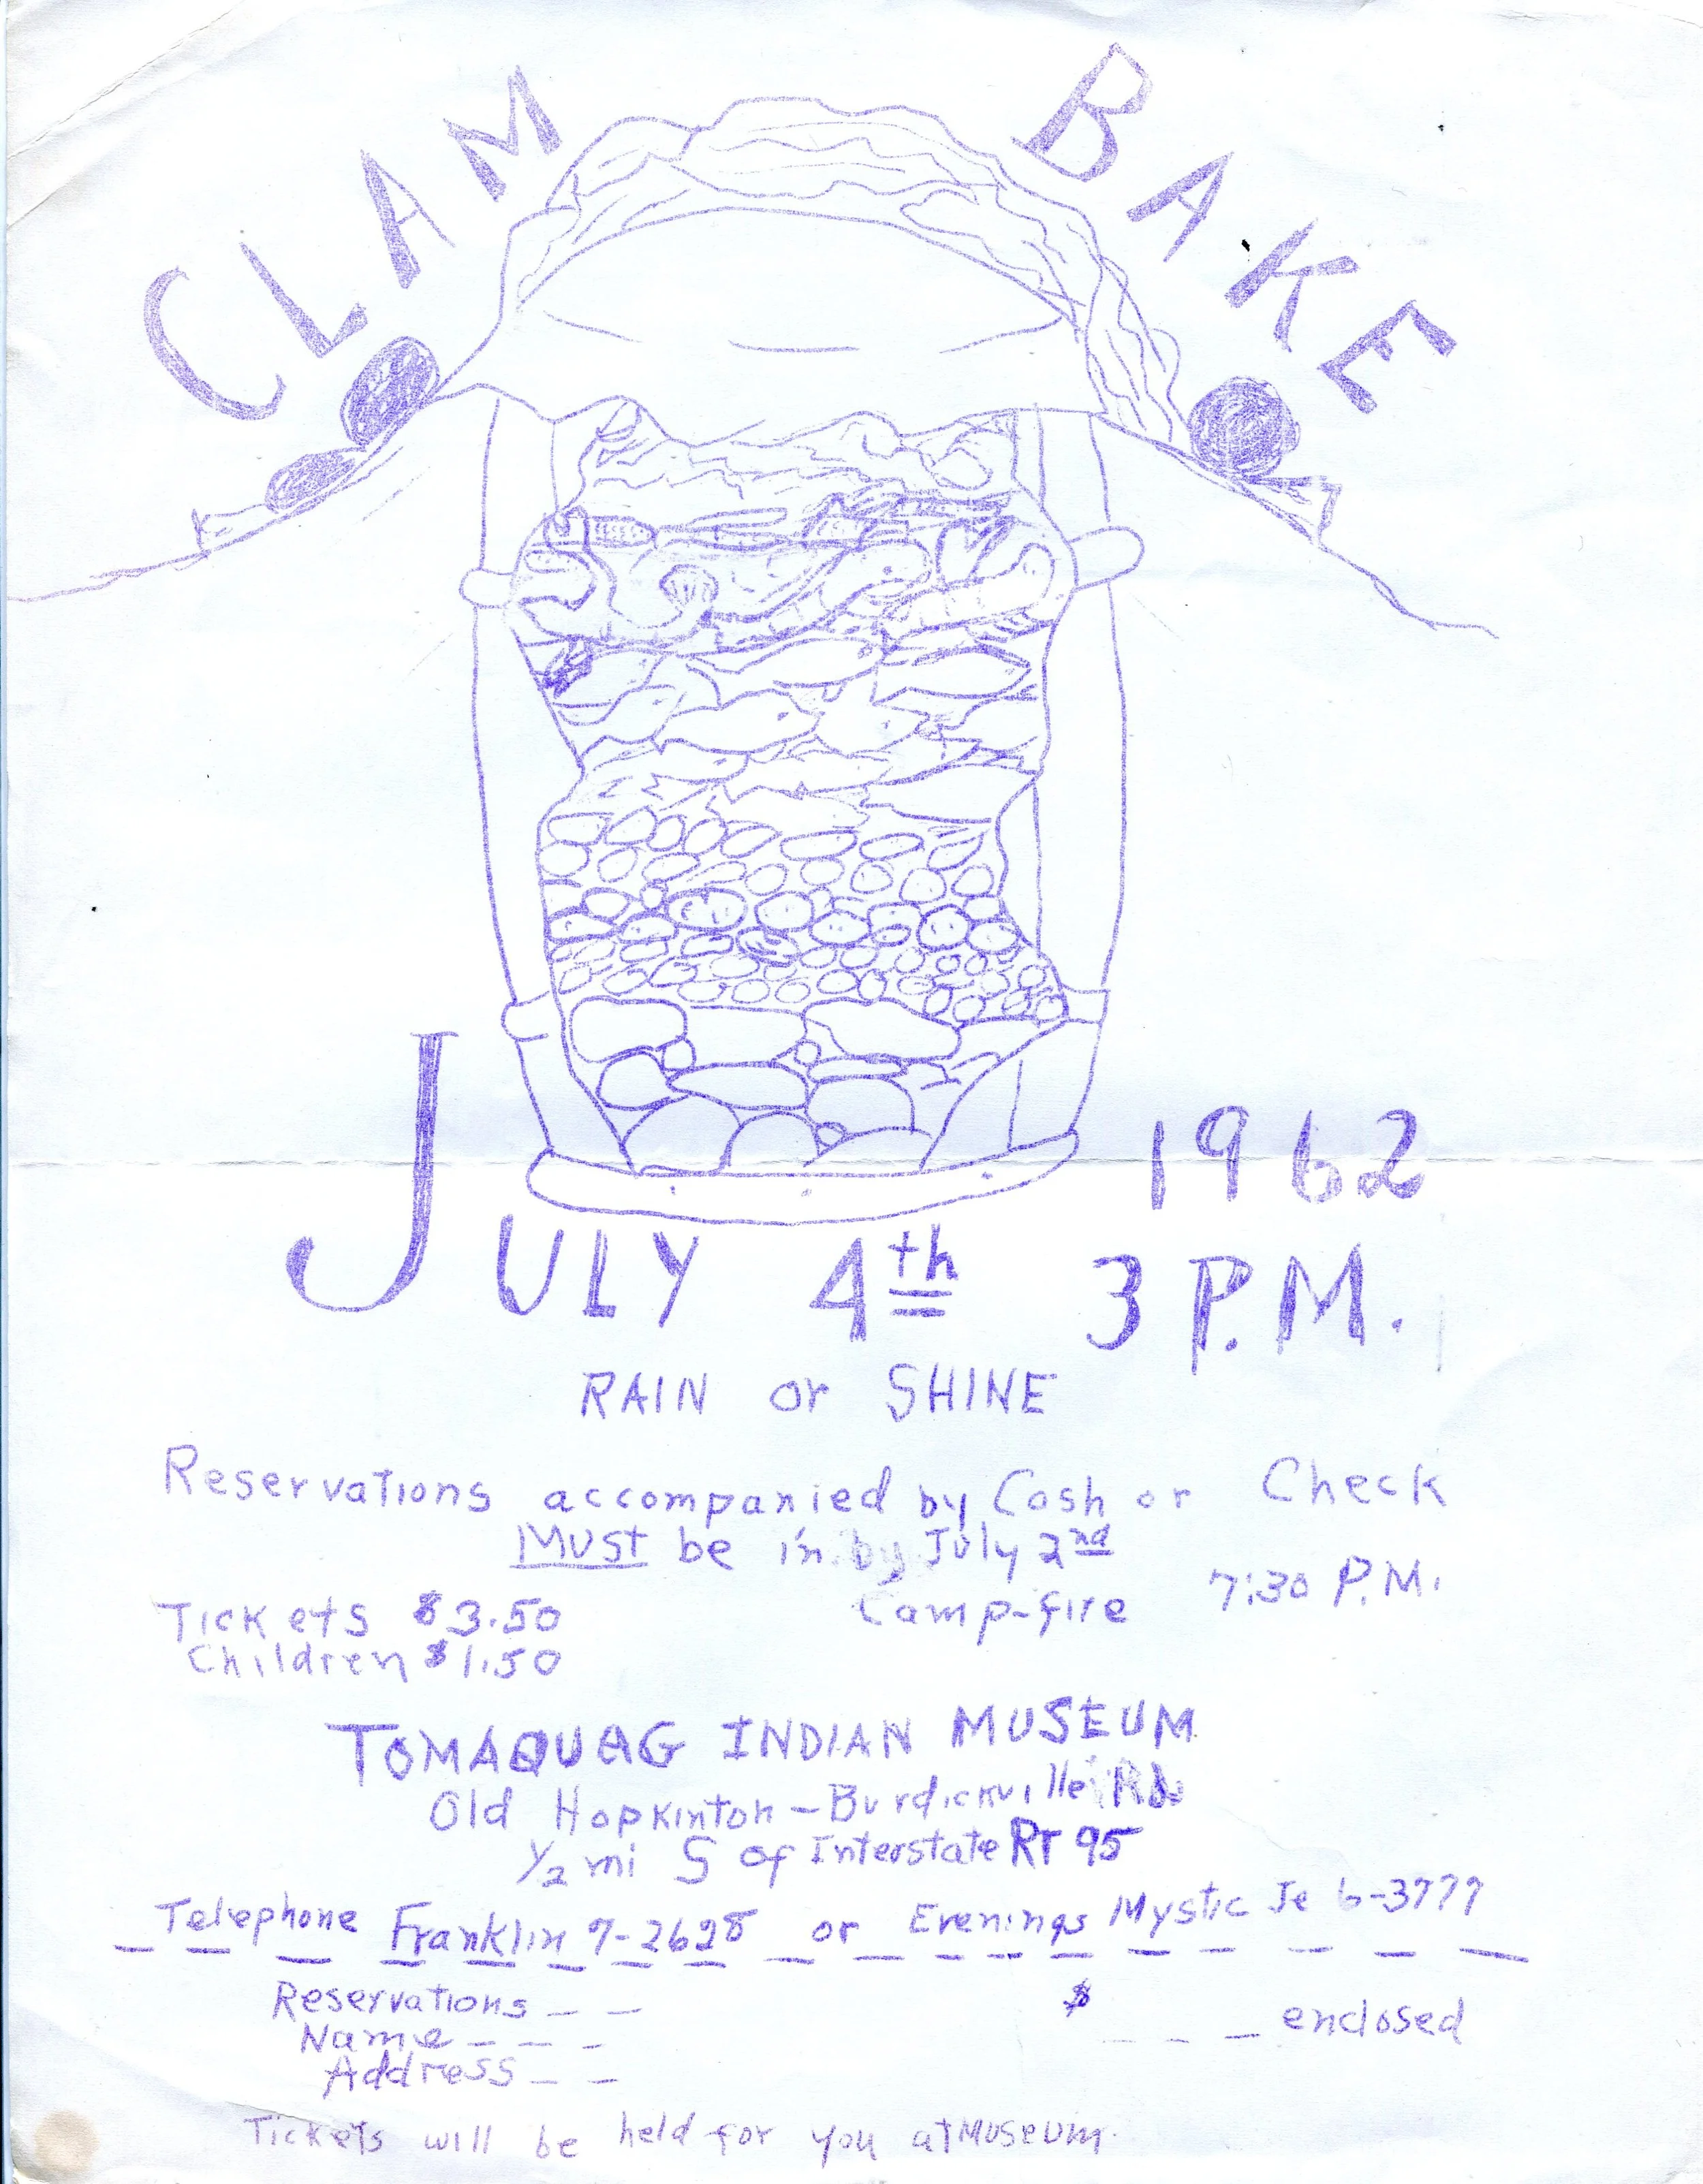 CLAM BAKE
1962
JULY 4th 3 P.M.
RAIN or SHINE
Reservations accompanied by Cash or Check
MUST be in by July 2nd
Camp-fire 7:30 P.M.
Tickets $3.50
Children $1.50
TOMAQUAG INDIAN MUSEUM
Old Hopkinton-Burdickville Rd
1/2 mi S of Interstate RT 95
Telephone Franklin 7-2628 or Evenings Mystic Je 6-3777
Reservations _ _ $ _ _ _ enclosed
Name _ _ _
Address _ _
Tickets will be held for you at Museum.